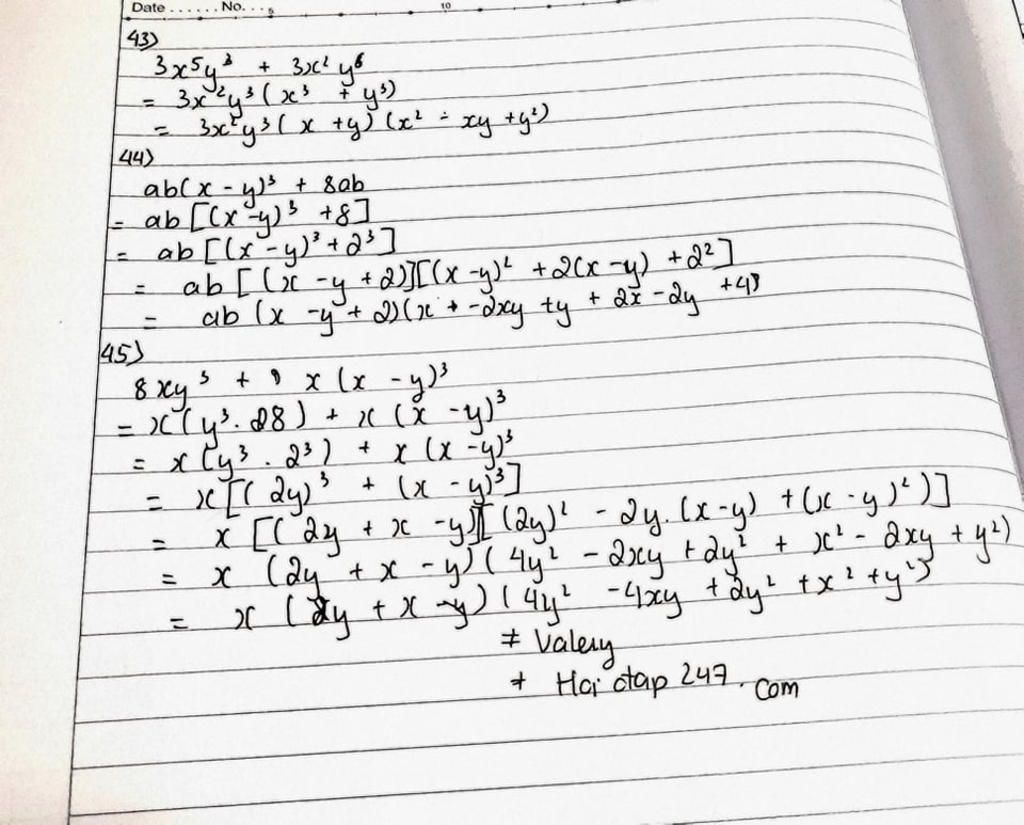 Date ...... No. ... 5 10
43)
3x⁵y³ + 3x²y⁶
= 3x²y³(x³ + y³)
= 3x²y³(x + y)(x² - xy + y²)
44)
ab(x - y)³ + 8ab
= ab[(x - y)³ + 8]
= ab[(x - y)³ + 2³]
= ab[(x - y + 2)][(x - y)² + 2(x - y) + 2²]
= ab(x - y + 2)(x + -2xy + y + 2x - 2y + 4)
45)
8xy³ + x(x - y)³
= x(y³ . 28) + x(x - y)³
= x(y³ . 2³) + x(x - y)³
= x[(2y)³ + (x - y)³]
= x[(2y + x - y)][(2y)² - 2y.(x - y) + (x - y)²)]
= x(2y + x - y)(4y² - 2xy + 2y² + x² - 2xy + y²)
= x(2y + x - y)(4y² - 4xy + 2y² + x² + y²)
# Valery
+ Hoi dap 247.com